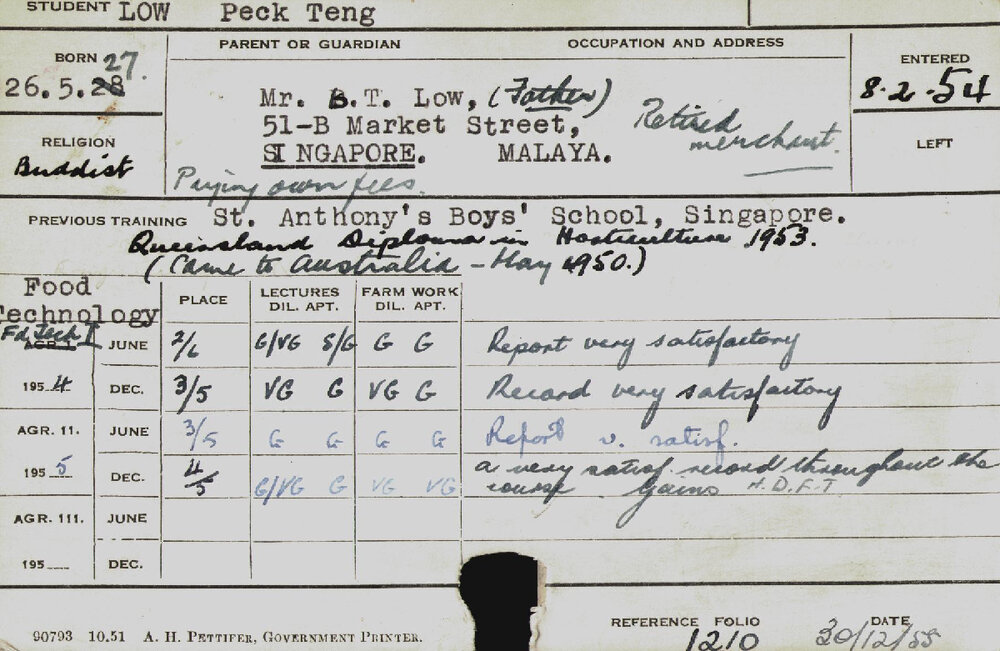 STUDENT LOW Peck Teng
BORN PARENT OR GUARDIAN OCCUPATION AND ADDRESS ENTERED
27.
26.5.28 Mr. B.T. Low, (Father) 8.2.54
51-B Market Street, Retired merchant.
RELIGION SINGAPORE. MALAYA. LEFT
Buddist Paying own fees.
PREVIOUS TRAINING St. Anthony's Boys' School, Singapore.
Queensland Diploma in Horticulture 1953.
(Came to Australia - May 1950.)
Food Technology PLACE LECTURES DIL. APT. FARM WORK DIL. APT.
Fd. Tech I
AGR. 1 JUNE 2/6 G/VG S/G G G Report very satisfactory
1954 DEC. 3/5 VG G VG G Record very satisfactory
AGR. 11. JUNE 3/5 G G G G Report v. satisf.
1955 DEC. 4/5 G/VG G VG VG a very satisf. record throughout the
course. Gains H.D.F.T.
AGR. 111. JUNE
195 DEC.
90793 10.51 A. H. PETTIFER, GOVERNMENT PRINTER.
REFERENCE FOLIO DATE
1210 30/12/55